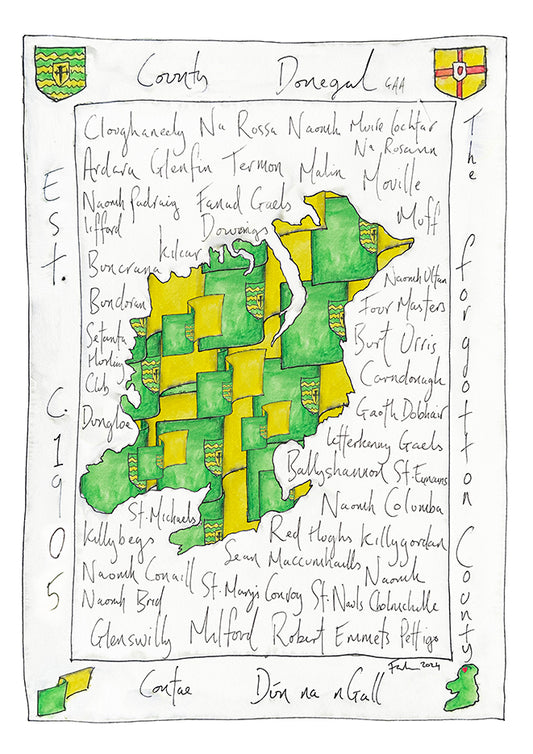 County Donegal GAA
Est. C.1905
The Forgotton County
Cloughaneely Na Rossa Naomh Muire Iochtar
Na Rosann
Ardara Glenfin Termon Malin Moville
Naomh Padraig Fanad Gaels
Moff
Lifford
Downings
Kilcar
Buncrana
Naomh Ultan
Bundoran
Four Masters
Setanta
Hurling
Club
Burt Urris
Carndonagh
Dungloe
Gaoth Dobhair
Letterkenny Gaels
Ballyshannon St. Eunans
St. Michaels
Naomh Columba
Killybegs
Red Hughs Killygordan
Sean Maccumhaills
Naomh Conaill
Naomh
Naomh Brid
St. Marys Convoy St. Nauls Cholmchille
Glenswilly Milford Robert Emmets Pettigo
2024
Contae Dún na nGall